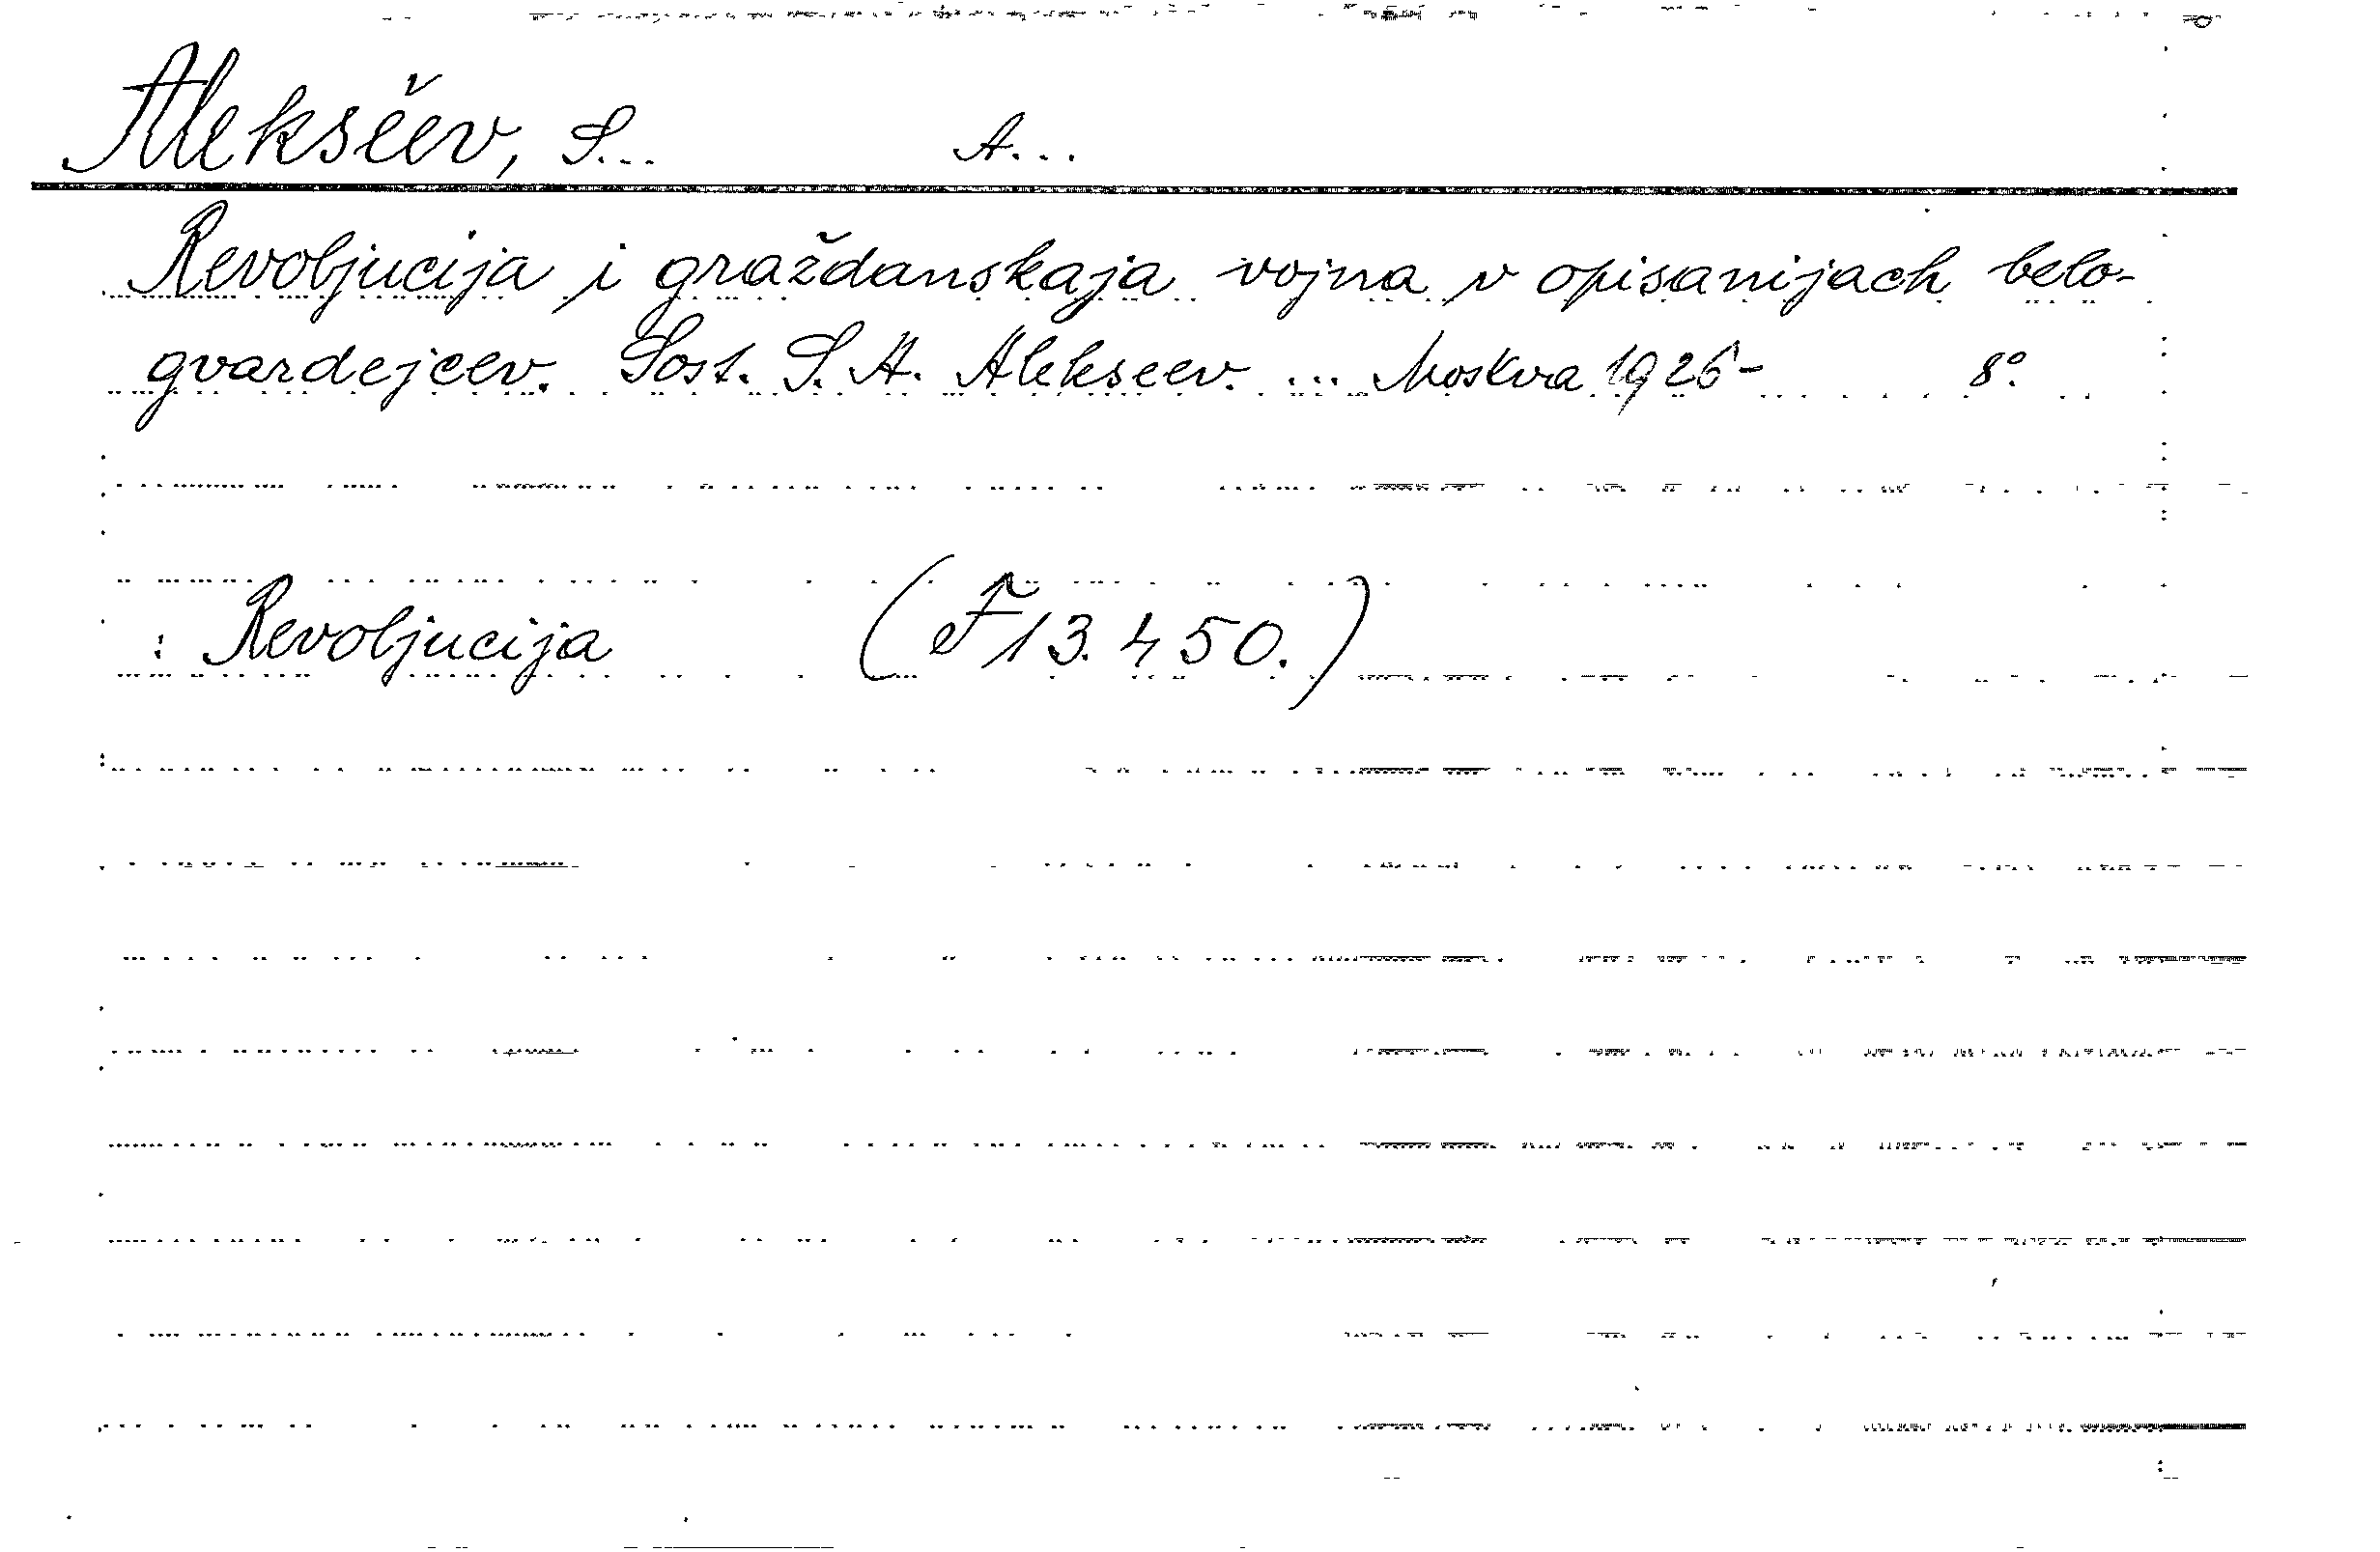 Aleksěev, S... A...
Revoljucija i graždanskaja vojna v opisanijach belo-
gvardejcev. Sost. S. A. Alekseev. ... Moskva 1926- 8°.
: Revoljucija (F 13.450.)